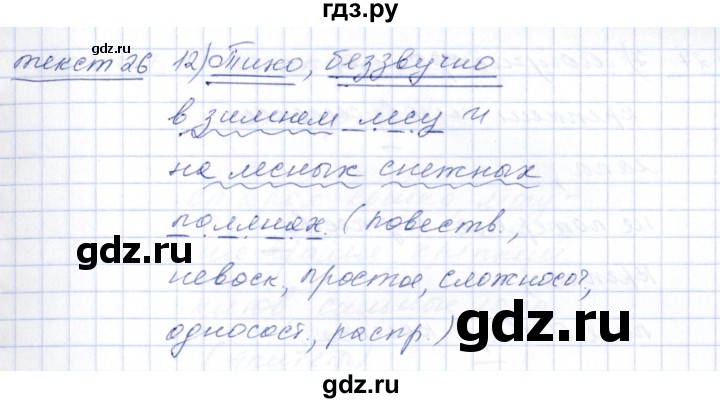 гдз.ру
текст 26 12) Тихо, беззвучно
gdz.ru
в зимнем лесу и
на лесных снежных
полянах. (повеств.,
gdz.ru
невоск., простое,
gdz.ru
односост., распр.)
gdz.ru